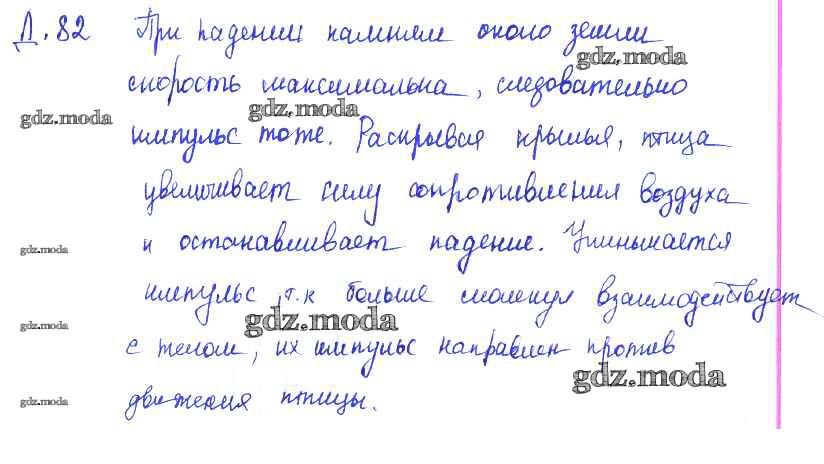 Д.82 При падении камнем около земли
gdz.moda
скорость максимальна, следовательно
gdz.moda
gdz.moda
импульс тоже. Раскрывая крылья, птица
увеличивает силу сопротивления воздуха
и останавливает падение. Уменьшается
gdz.moda
импульс, т.к больше молекул взаимодействует
gdz.moda
gdz.moda
с телом, их импульс направлен против
gdz.moda
движения птицы.
gdz.moda